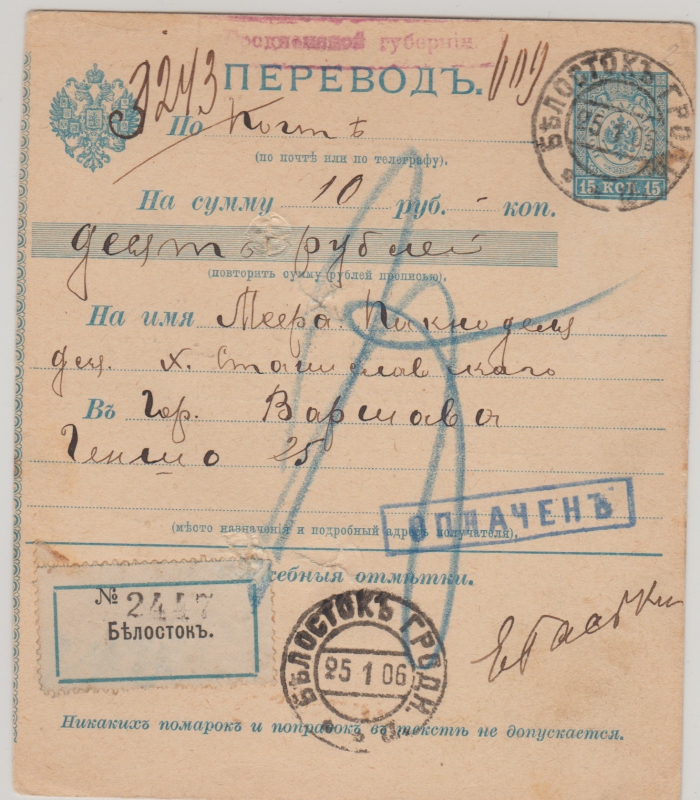 губерніи.
3243 ПЕРЕВОДЪ. 609
БѢЛОСТОКЪ ГРОДН.
15 КОП. 15
По Почтѣ
(по почтѣ или по телеграфу).
На сумму 10 руб. - коп.
десять рублей
(повторить сумму рублей прописью).
На имя Меера
для Х. Станиславскаго
Въ Гор. Варшава
Генша 25
(мѣсто назначенія и подробный адресъ получателя).
ОПЛАЧЕНЪ
Служебныя отмѣтки.
№ 2447
Бѣлостокъ.
БѢЛОСТОКЪ ГРОДН.
25 1 06
Никакихъ помарокъ и поправокъ въ текстѣ не допускается.